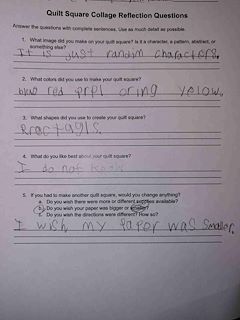 Quilt Square Collage Reflection Questions
Answer the questions with complete sentences. Use as much detail as possible.
1. What image did you make on your quilt square? Is it a character, a pattern, abstract, or
something else?
It is just random characters.
2. What colors did you use to make your quilt square?
blue red prpl oring yelow.
3. What shapes did you use to create your quilt square?
Rractagls.
4. What do you like best about your quilt square?
I do not know
5. If you had to make another quilt square, would you change anything?
a. Do you wish there were more or different supplies available?
b. Do you wish your paper was bigger or smaller?
c. Do you wish the directions were different? How so?
I wish my paper was smaller.